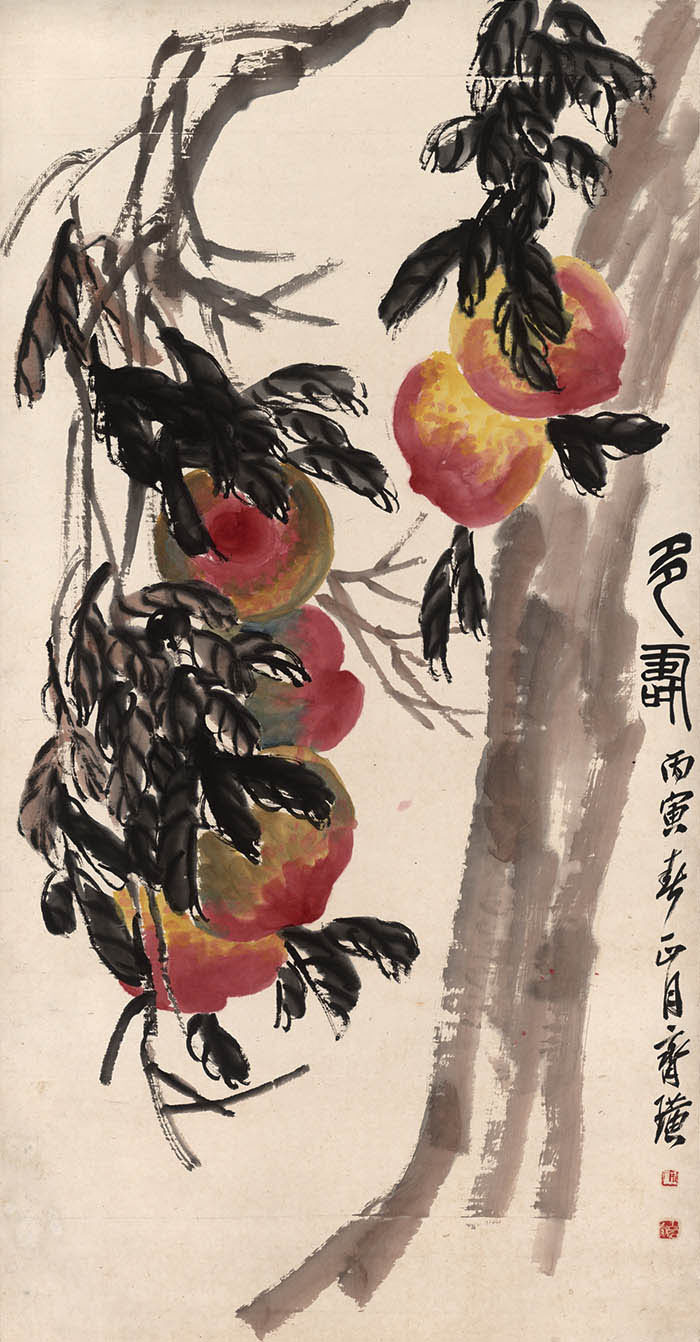 多壽
丙寅春正月齊璜